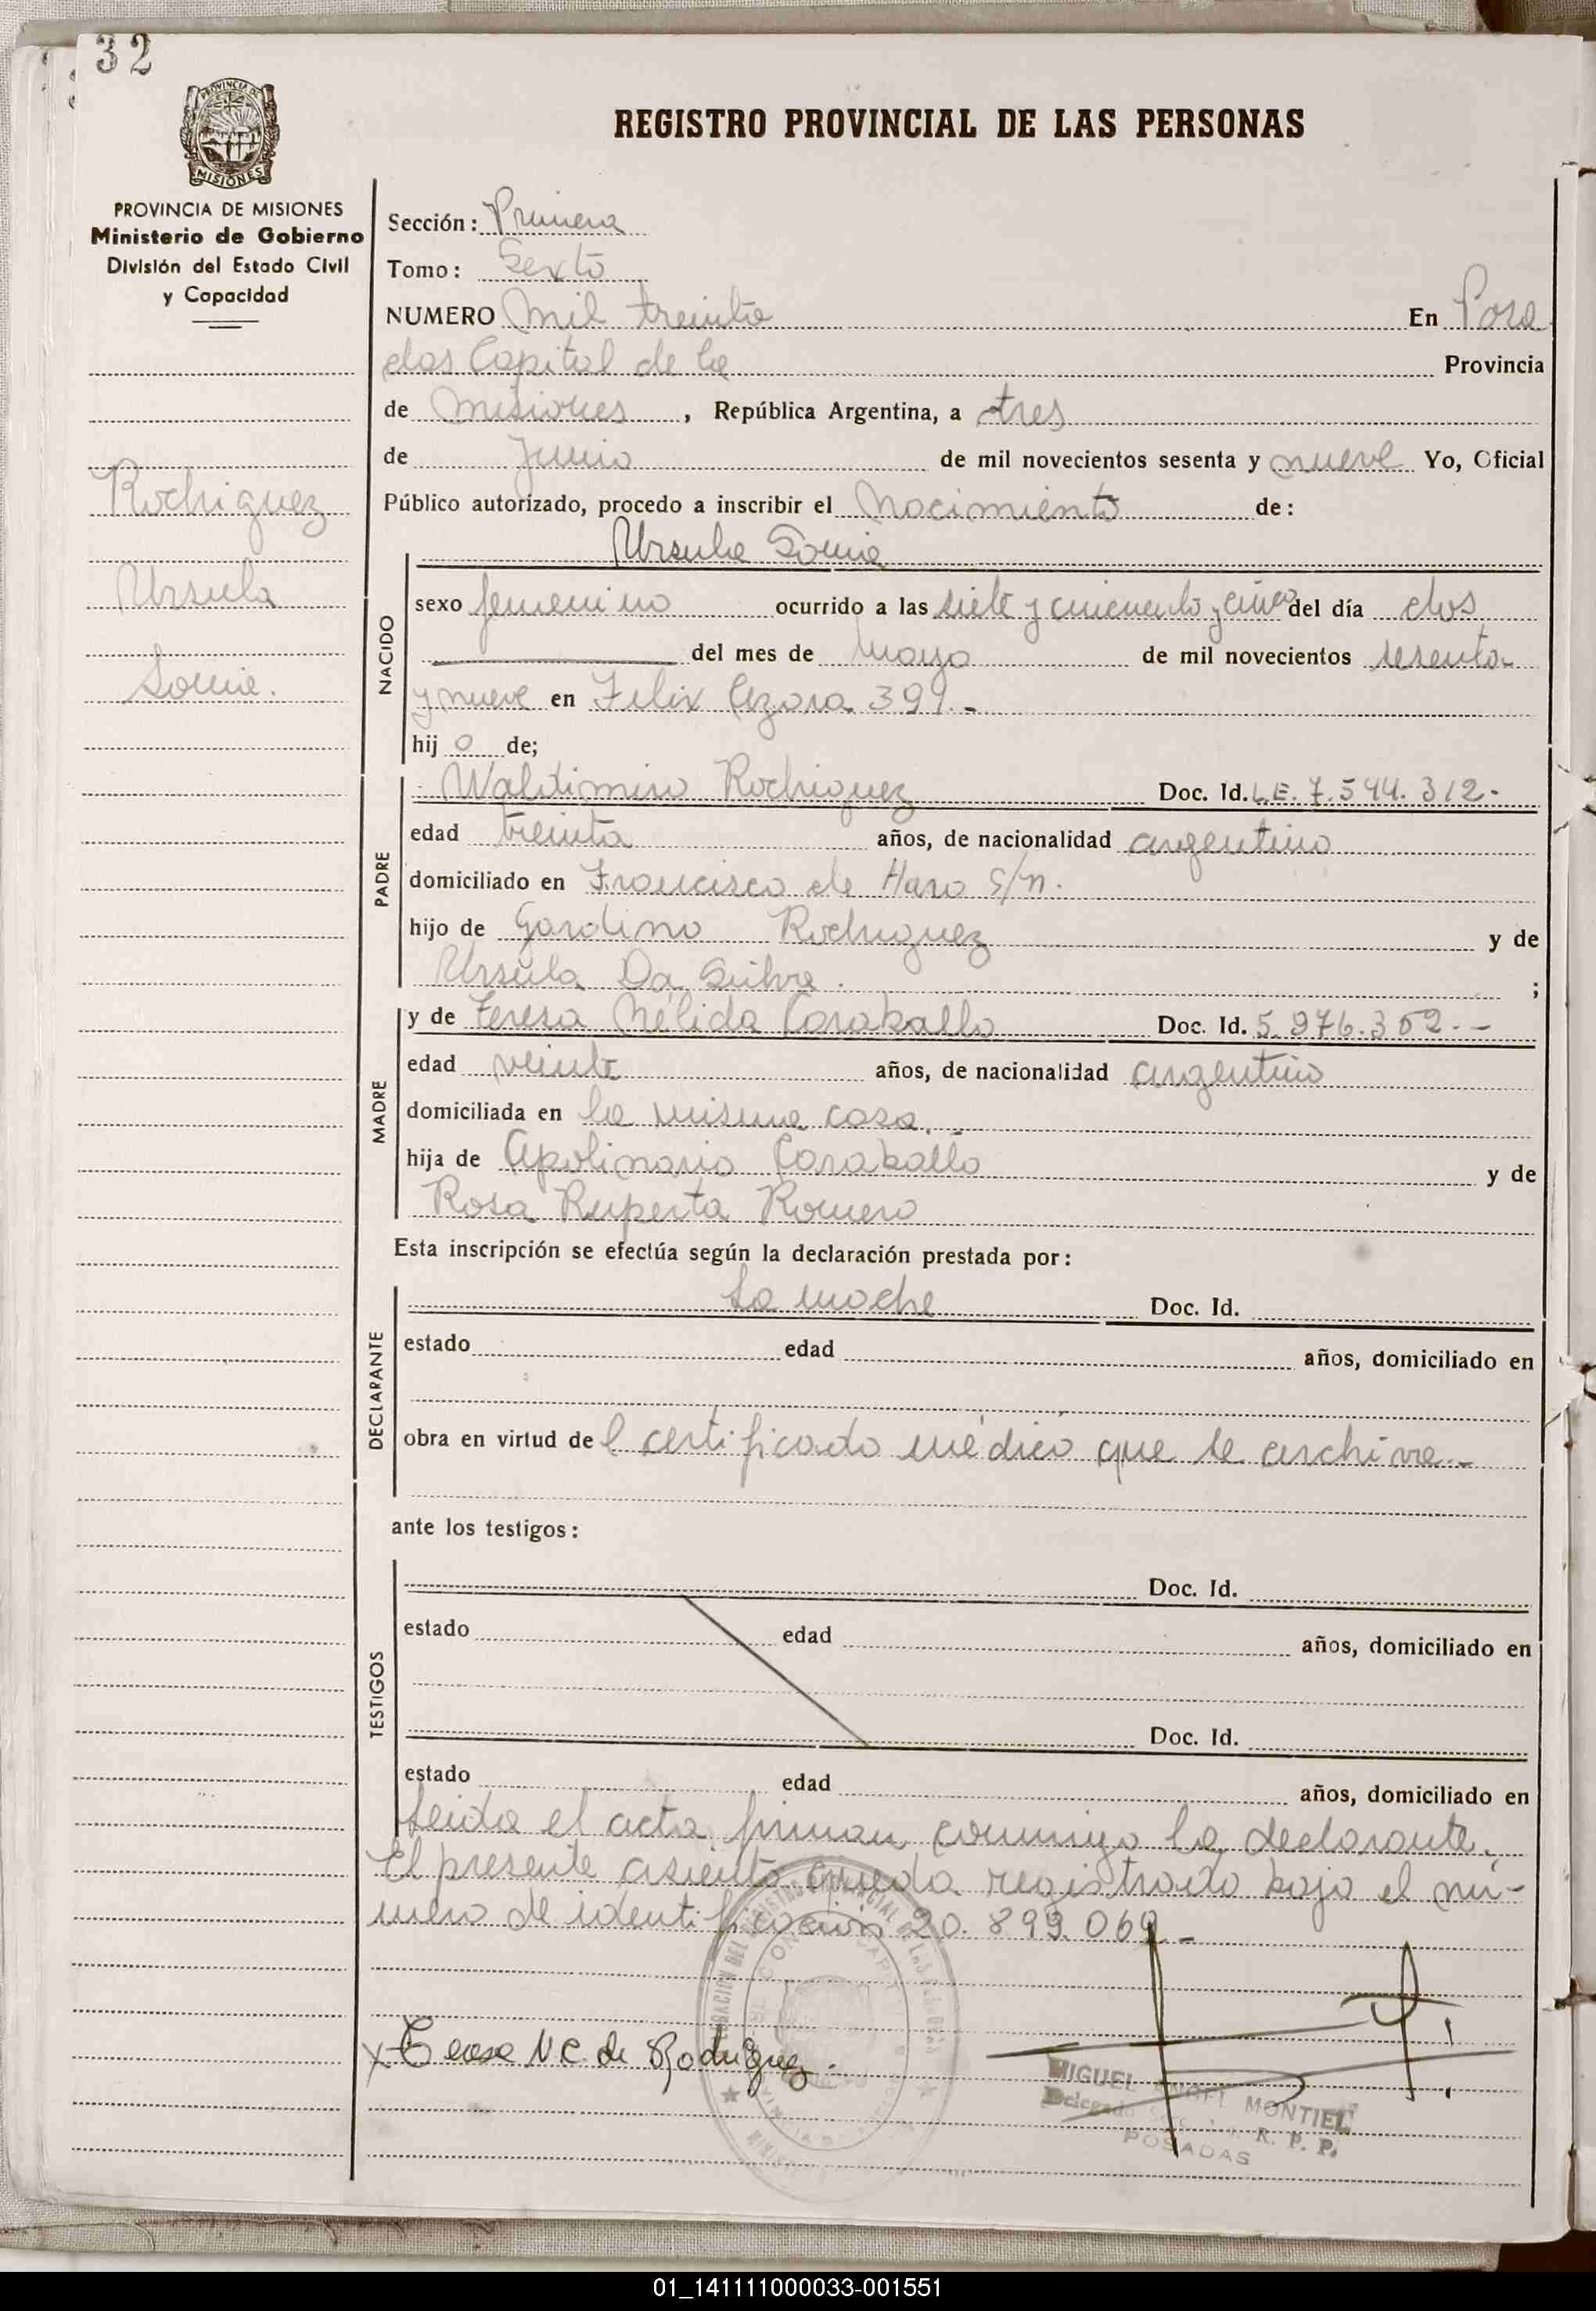 32
PROVINCIA DE
MISIONES
PROVINCIA DE MISIONES
Ministerio de Gobierno
División del Estado Civil
y Capacidad
Rodriguez
Ursula
Sonia.
REGISTRO PROVINCIAL DE LAS PERSONAS
Sección: Primera
Tomo: Sexto
NUMERO mil treinta En Posa
das Capital de la Provincia
de Misiones, República Argentina, a tres
de Junio de mil novecientos sesenta y nueve Yo, Oficial
Público autorizado, procedo a inscribir el Nacimiento de:
Ursula Sonia
NACIDO
sexo femenino ocurrido a las siete y cincuenta y cinco del día dos
del mes de mayo de mil novecientos sesenta
y nueve en Felix Azara 399.-
hij a de;
PADRE
Waldimiro Rodriguez Doc. Id. L.E. 7.544.312-
edad treinta años, de nacionalidad argentino
domiciliado en Francisco de Haro S/n.
hijo de Gardino Rodriguez y de
Ursula Da Silva. ;
MADRE
y de Teresa Nélida Caraballo Doc. Id. 5.976.352.-
edad veinte años, de nacionalidad argentina
domiciliada en la misma casa.-
hija de Apolinario Caraballo y de
Rosa Ruperta Romero
Esta inscripción se efectúa según la declaración prestada por:
DECLARANTE
La madre Doc. Id.
estado edad años, domiciliado en
obra en virtud de l certificado médico que se archiva.-
ante los testigos:
TESTIGOS
Doc. Id.
estado edad años, domiciliado en
Doc. Id.
estado edad años, domiciliado en
Leida el acta firman conmigo la declarante.
El presente asiento queda registrado bajo el nú-
mero de identificación 20.899.069.-
x Teresa N C. de Rodriguez.
MIGUEL ANGEL MONTIEL
Delegado R. P. P.
POSADAS
01_141111000033-001551